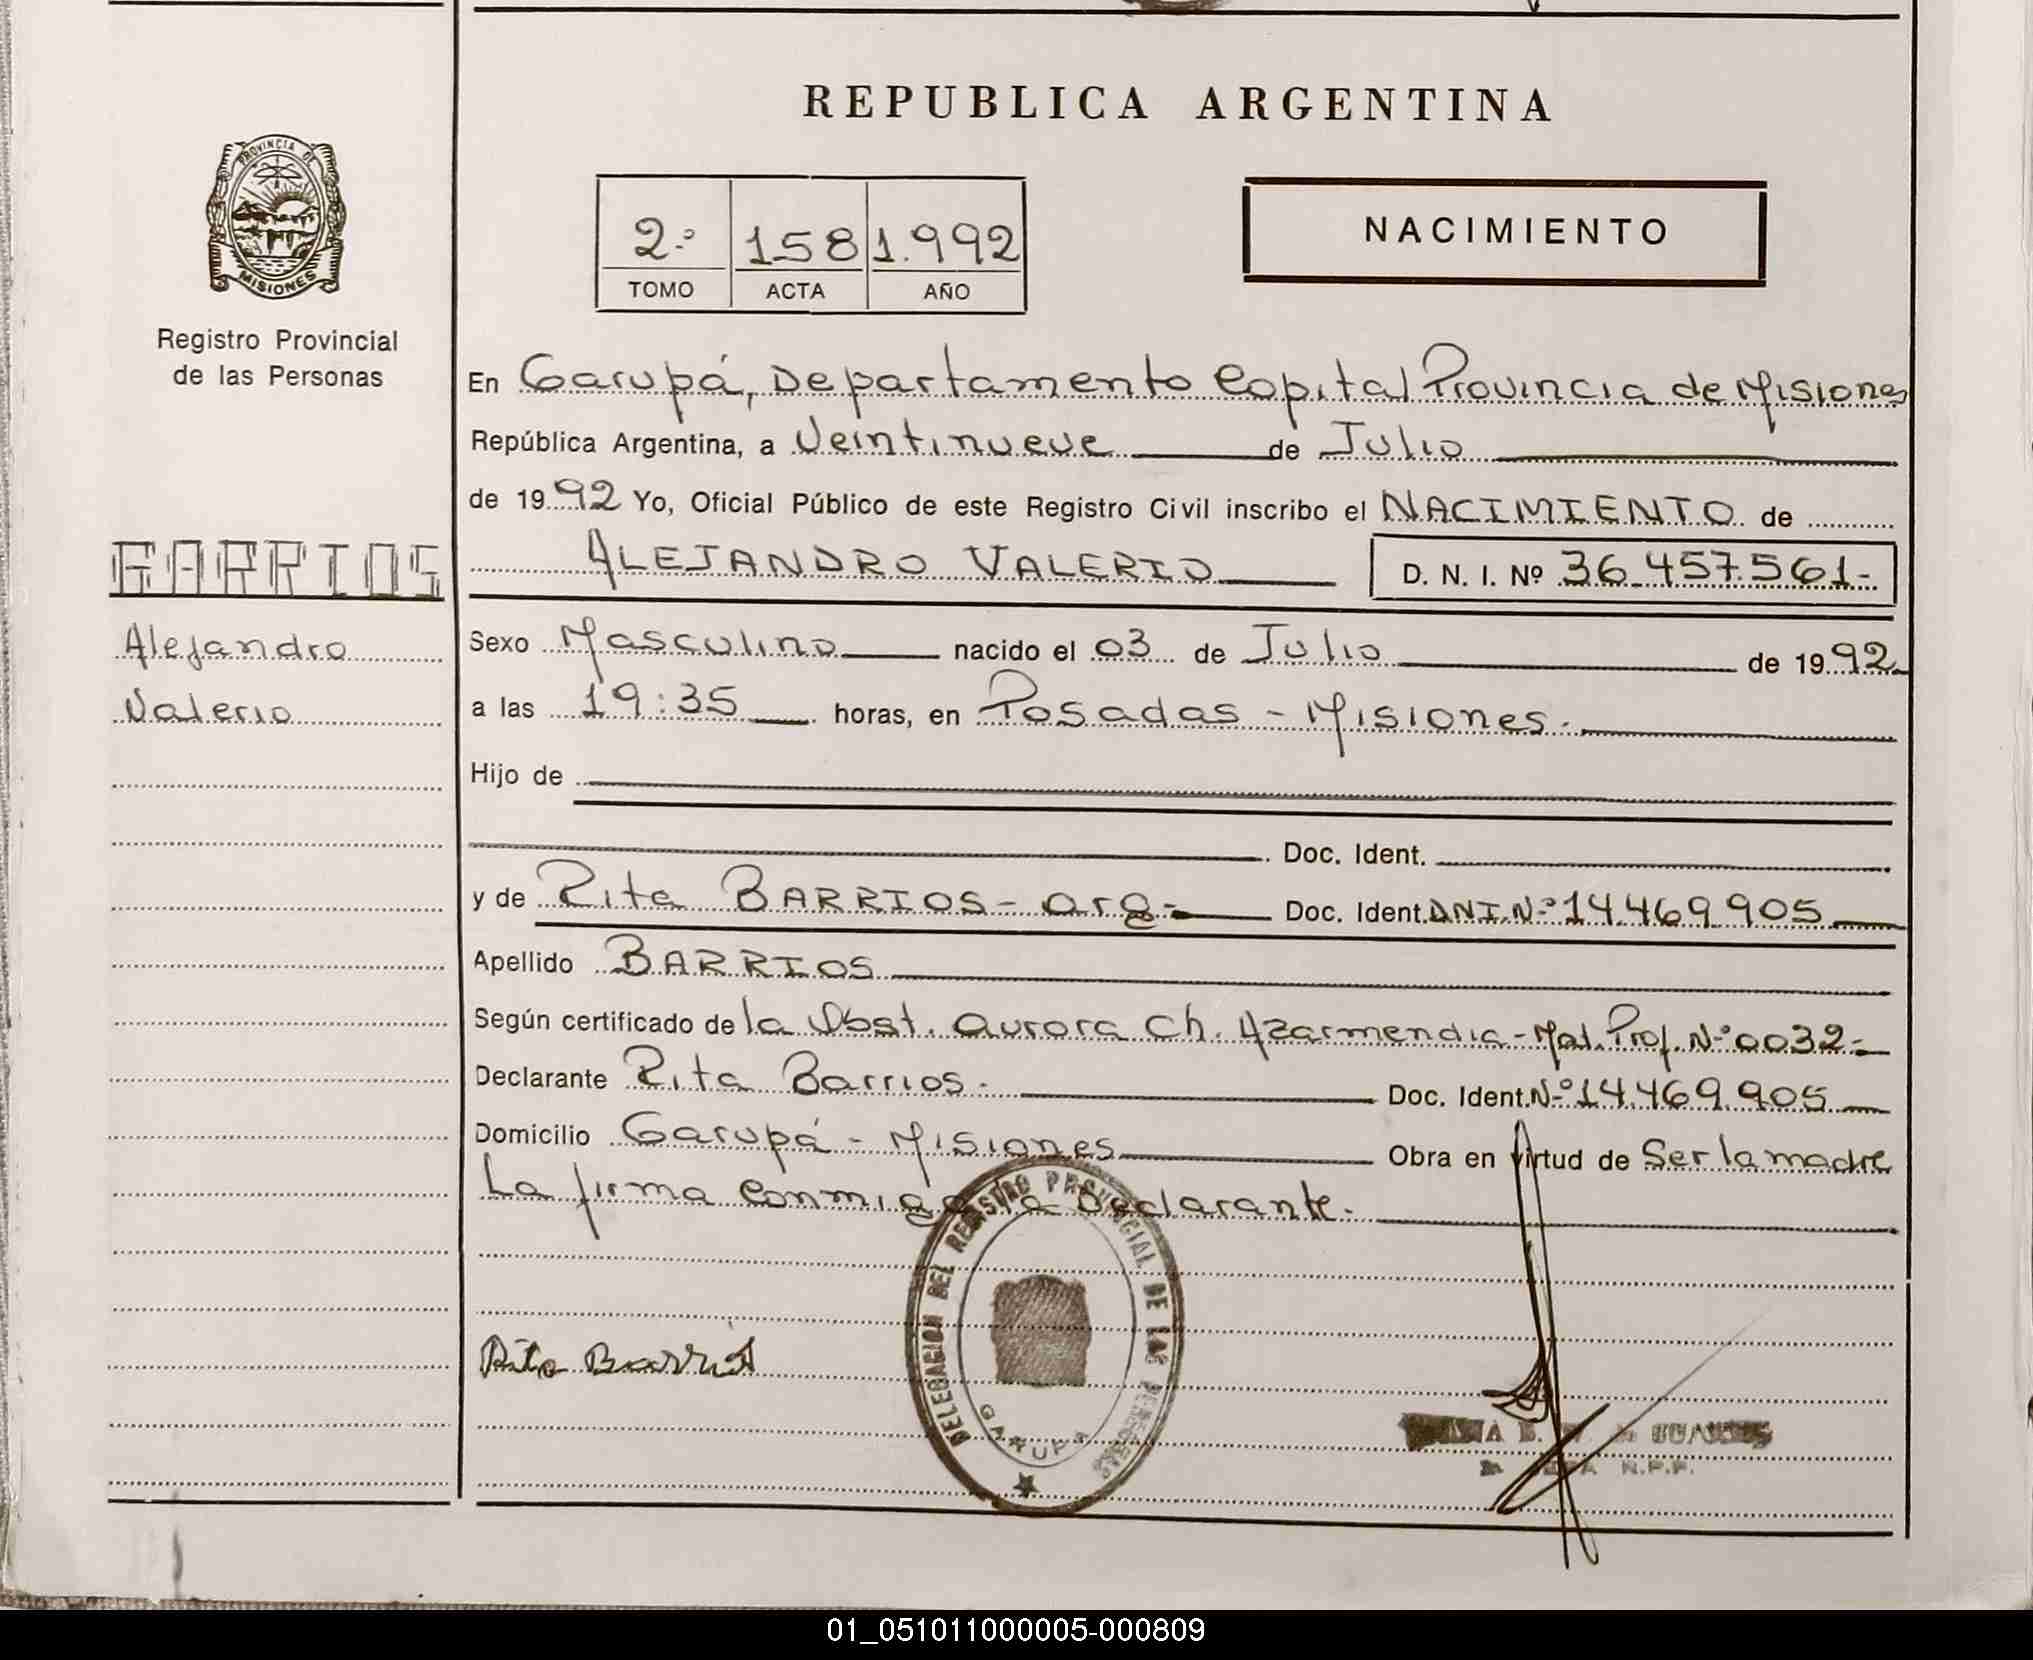 REPUBLICA ARGENTINA
PROVINCIA DE
MISIONES
Registro Provincial
de las Personas
2.º 158 1.992
TOMO ACTA AÑO
NACIMIENTO
En Garupá, Departamento Capital Provincia de Misiones
República Argentina, a Veintinueve de Julio
de 1992 Yo, Oficial Público de este Registro Civil inscribo el NACIMIENTO de
BARRIOS
ALEJANDRO VALERIO D. N. I. Nº 36.457.561-
Alejandro
Valerio
Sexo Masculino nacido el 03 de Julio de 1992
a las 19:35 horas, en Posadas - Misiones.
Hijo de
Doc. Ident.
y de Rita BARRIOS - arg- Doc. Ident. DNI.Nº 14.469.905
Apellido BARRIOS
Según certificado de la Obst. Aurora Ch. Azarmendia - Mat. Prof. Nº 0032-
Declarante Rita Barrios. Doc. Ident. Nº 14.469.905
Domicilio Garupá - Misiones Obra en virtud de Ser la madre
La firma conmigo la Declarante.
DELEGACION DEL REGISTRO PROVINCIAL DE LAS PERSONAS
GARUPA
Rita Barrios
01_051011000005-000809